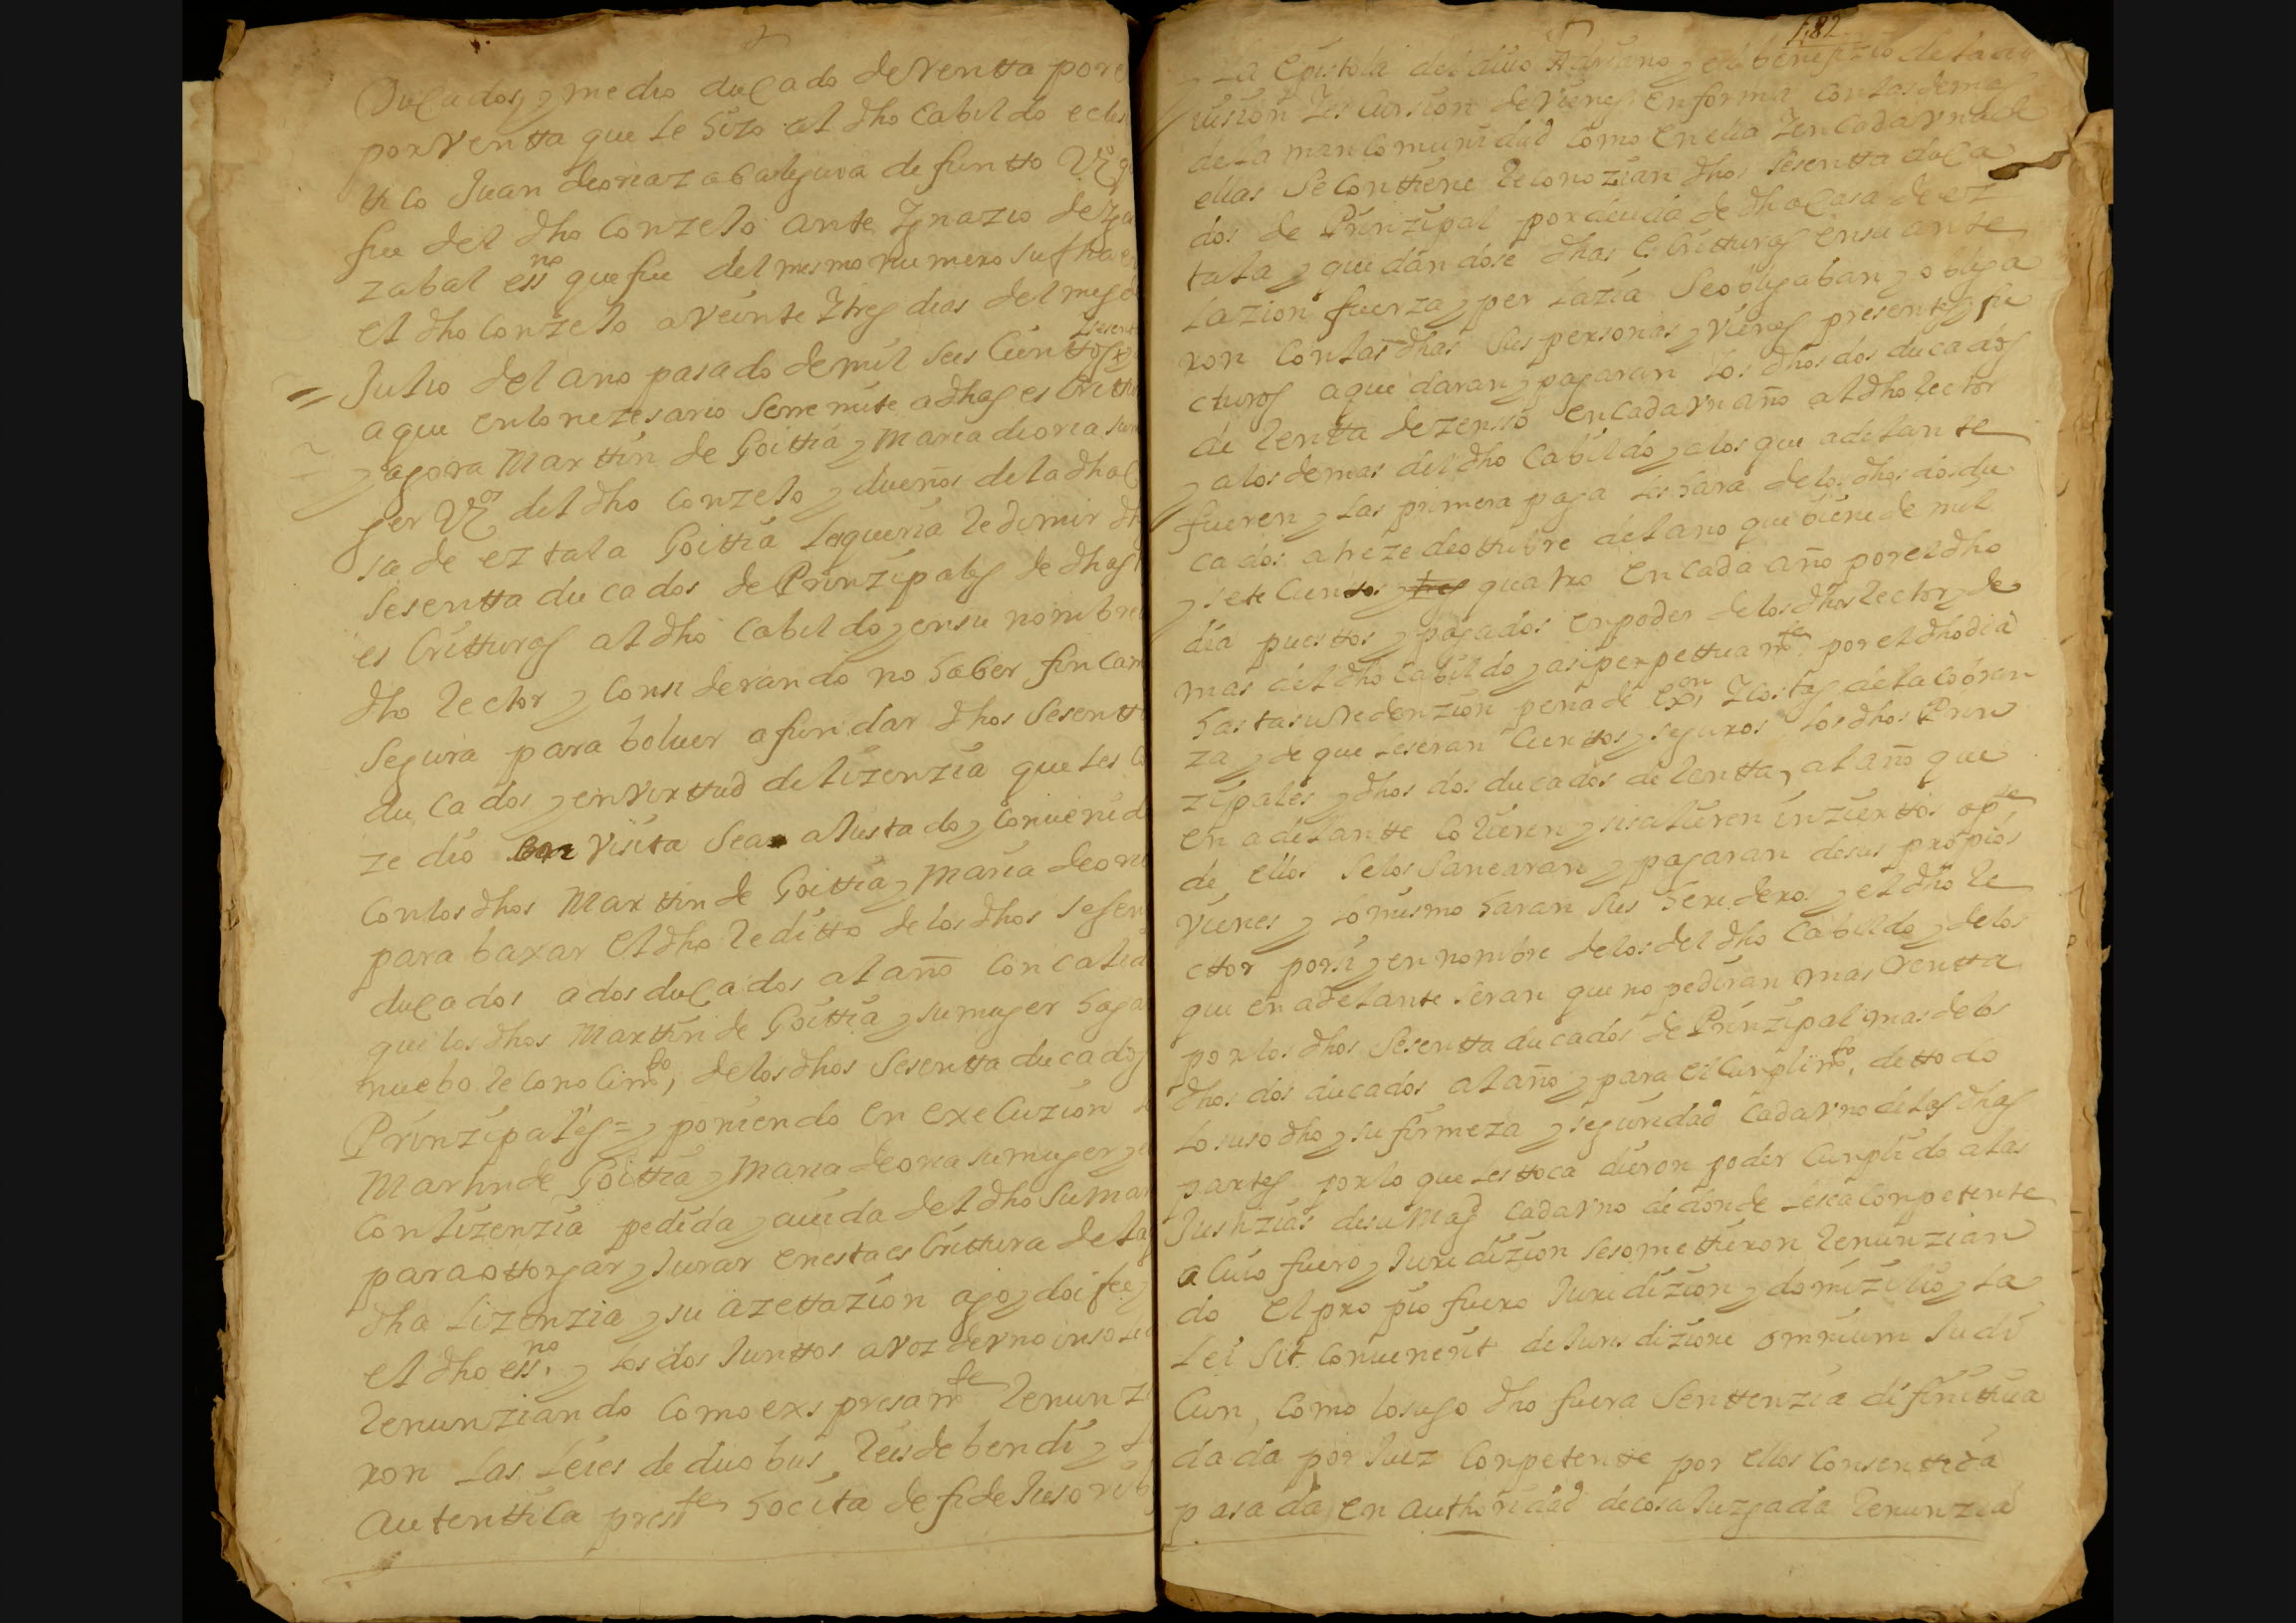 Ducados, y medio ducado de Rentta por e
por Ventta que le hizo al dho Cabildo ecles
tico Juan deoriazabaleguia defuntto Vzº q
fue del dho Conzejo ante Ygnazio de Yga
zabal essno que fue del mesmo numero su fha en
el dho Conzejo a Veinte Ytres dias del mes de
= Julio del ano pasado demil seis Cienttos y sesent
aque en lo nezesario se rremite a dhas es Critturas
y agora Marttin de Goittia y Maria deoria su mu
ger Vzos del dho Conzejo y dueños de la dha Ca
sa de eztala Goittia le queria Redimir dh
Sesentta ducados de Prinzipales de dhas
es Critturas al dho Cabildo, y en su nombre
dho Rector y Considerando no haber fin Cam
Segura para boluer afundar dhos Sesentta
du Cados y en Virttud de lizenzia que les Con
ze dio en Visita Sea ajustado y Conuenido
Con los dhos Marttin de Goittia y Maria deoria
para baxar El dho Redito de los dhos sesen
ducados ados ducados al año Con calid
que los dhos Marttin de Goittia y su muger hagan
nuebo Reconocimto, de los dhos Sesentta ducados
Prinzipales = y poniendo en execuzion lo
Martin de Goittia y Maria deoria su muger y
Con lizenzia pedida y auida del dho Su mar
para ottorgar y Jurar en esta es Crittura de la
dha Lizenzia y su azettazion yo, doi fee
el dho essno. y los dos Junttos a voz de vno inso li
Renunziando Como exs presamte Renunzi
ron las leies de duobus Reis debendi y
Autenttica preste hocita de fide Jusorib
182
y La Epistola del diuo Adriano y el benefizio de la di
uision Yescursion de Vienes en forma Con las demas
de la mancomunidad Como en ella Yen Cada vna de
ellas Se Conttiene Reconozian dhos Sesentta duca
dos de Prinzipal por deuda de dha Casa de ez
tala y quedandose dhas Escritturas en su ante
lazion fuerza y per lazia Se obligaban y obliga
ron Con las dhas Sus personas y Vienes presentes y fu
cturos a que daran y pagaran los dhos dos ducados
de Rentta de zenso en Cada vn año al dho Rector
y a los demas del dho Cabildo y a los que adelante
fueren y las primera paga les hara de los dhos dos du
cados a treze de ottubre del ano que biene de mil
y sete Cientos y tres quatro en cada año por el dho
dia puesttos y pagados en poder de los dhos Rector y de
mas del dho Cabildo y asi perpettuamte por el dho dia
hasta su Redenzion pena de exon Ycostas de la cobran
za y de que le seran Ciertos y seguros los dhos Prin
zipales y dhos dos ducados de Rentta, al año que
en adelantte Corieren y si salieren inziertos o pte
de ellos Se los Sanearan y pagaran de sus propios
Vienes y lo mismo haran Sus herederos y el dho Re
ctor por si y en nombre de los del dho Cabildo y de los
que en adelante Seran que no pediran mas Rentta
por los dhos Sesentta ducados de Prinzipal mas de los
dhos dos ducados al año y para el Cunplimto. de ttodo
lo suso dho y su firmeza y seguridad Cada vno de las dhas
partes por lo que les ttoca dieron poder Cunplido a las
Justizias de su Magd Cada vno de donde le sea Conpetente
a Cuio fuero y Juridizion se somettieron Renunzian
do El pro pio fuero Juridizion y domizilio y La
Lei Sit Conuenerit de Jurisdizione omnium Judi
Cun, Como lo suso dho fuera Senttenzia difinittiua
dada por Juez Conpetentte por ellos Consenttida
pasada en authoridad de Cosa Juzgada Renunzia